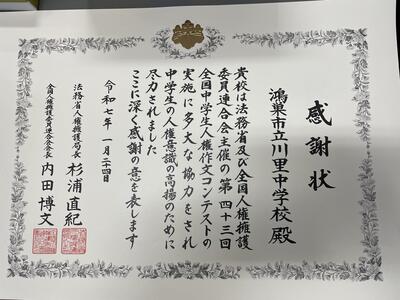 感謝状
鴻巣市立川里中学校 殿
貴校は法務省及び全国人権擁護
委員連合会主催の第四十三回
全国中学生人権作文コンテストの
実施に多大な協力をされ
中学生の人権意識の高揚のために
尽力されました
ここに深く感謝の意を表します
令和七年一月二十四日
法務省人権擁護局長 杉浦直紀
全国人権擁護委員連合会会長 内田博文